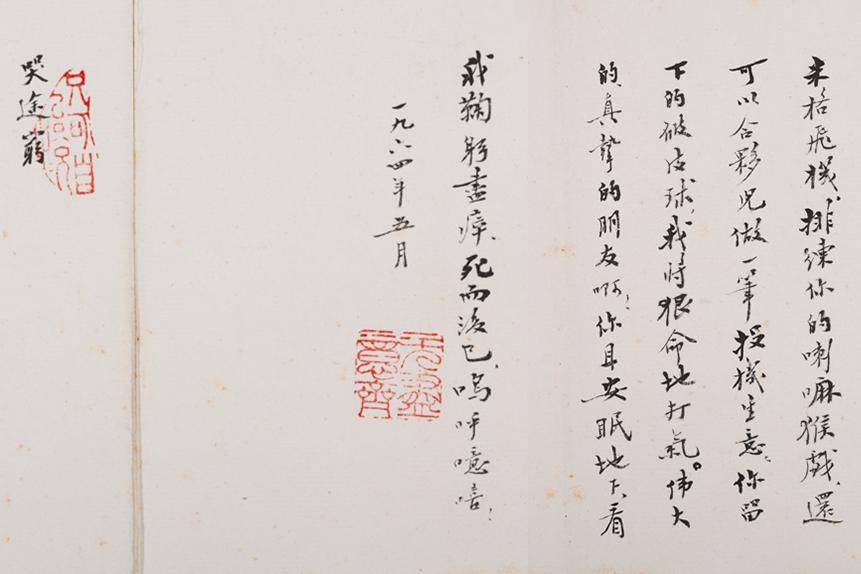 米格飛機,排練你的喇嘛猴戲,還
可以合夥兒做一筆投機生意。你留
下的破皮球,我将狠命地打氣。伟大
的、真摯的朋友啊!你且安眠地下,看
我鞠躬盡瘁,死而後已。嗚呼噫嘻!
一九六四年五月
无盡意齋
哭途窮